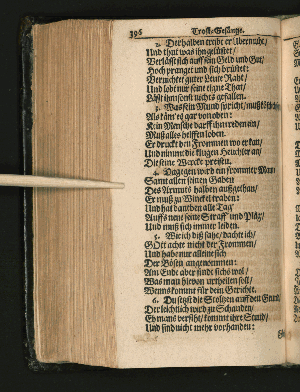 396 Trost-Gesänge.
2. Derhalben treibt er Ubermuht/
Und thut was ihn gelüstet/
Verläst sich auff sein Geld und Gut/
Hoch pranget und sich brüstet:
Verachtet guter Leute Raht/
Und lobt nur seine eigne That/
Läst ihm sonst nichts gefallen.
3. Was sein Mund spricht/ muß
Als käm es gar von oben:
Kein Mensche darff ihm reden ein/
Muß alles helffen loben.
Er druckt den Frommen wo er kan/
Und nimmt die klugen Heuchler an/
Die seine Werck preisen.
4. Dagegen wird ein frommer Mann
Samt allen seinen Gaben
Des Armuts halben außgethan/
Er muß zu Winckel traben:
Und hat danthen alle Tag/
Auffs neue seine Straff und Plag/
Und muß sich immer leiden.
5. Wie ich diß sahe/ dachte ich/
GOtt achte nicht der Frommen/
Und habe nur alleine sich
Der Bösen angenommen:
Am Ende aber findt sichs wol/
Was man hievon urtheilen soll/
Wenns kommt für dein Gerichte.
6. Du setzst die Stoltzen auff den Grund,
Der leichtlich wird zu Schanden/
Eh mans versiht/ kommt ihr Stund/
Und sind nicht mehr vorhanden: